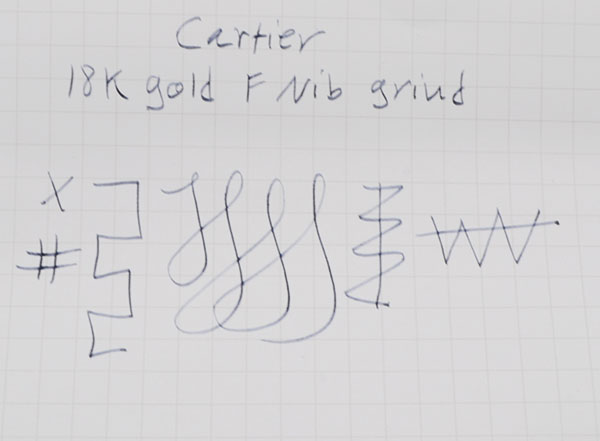 Cartier
18K gold F Nib grind
X
#